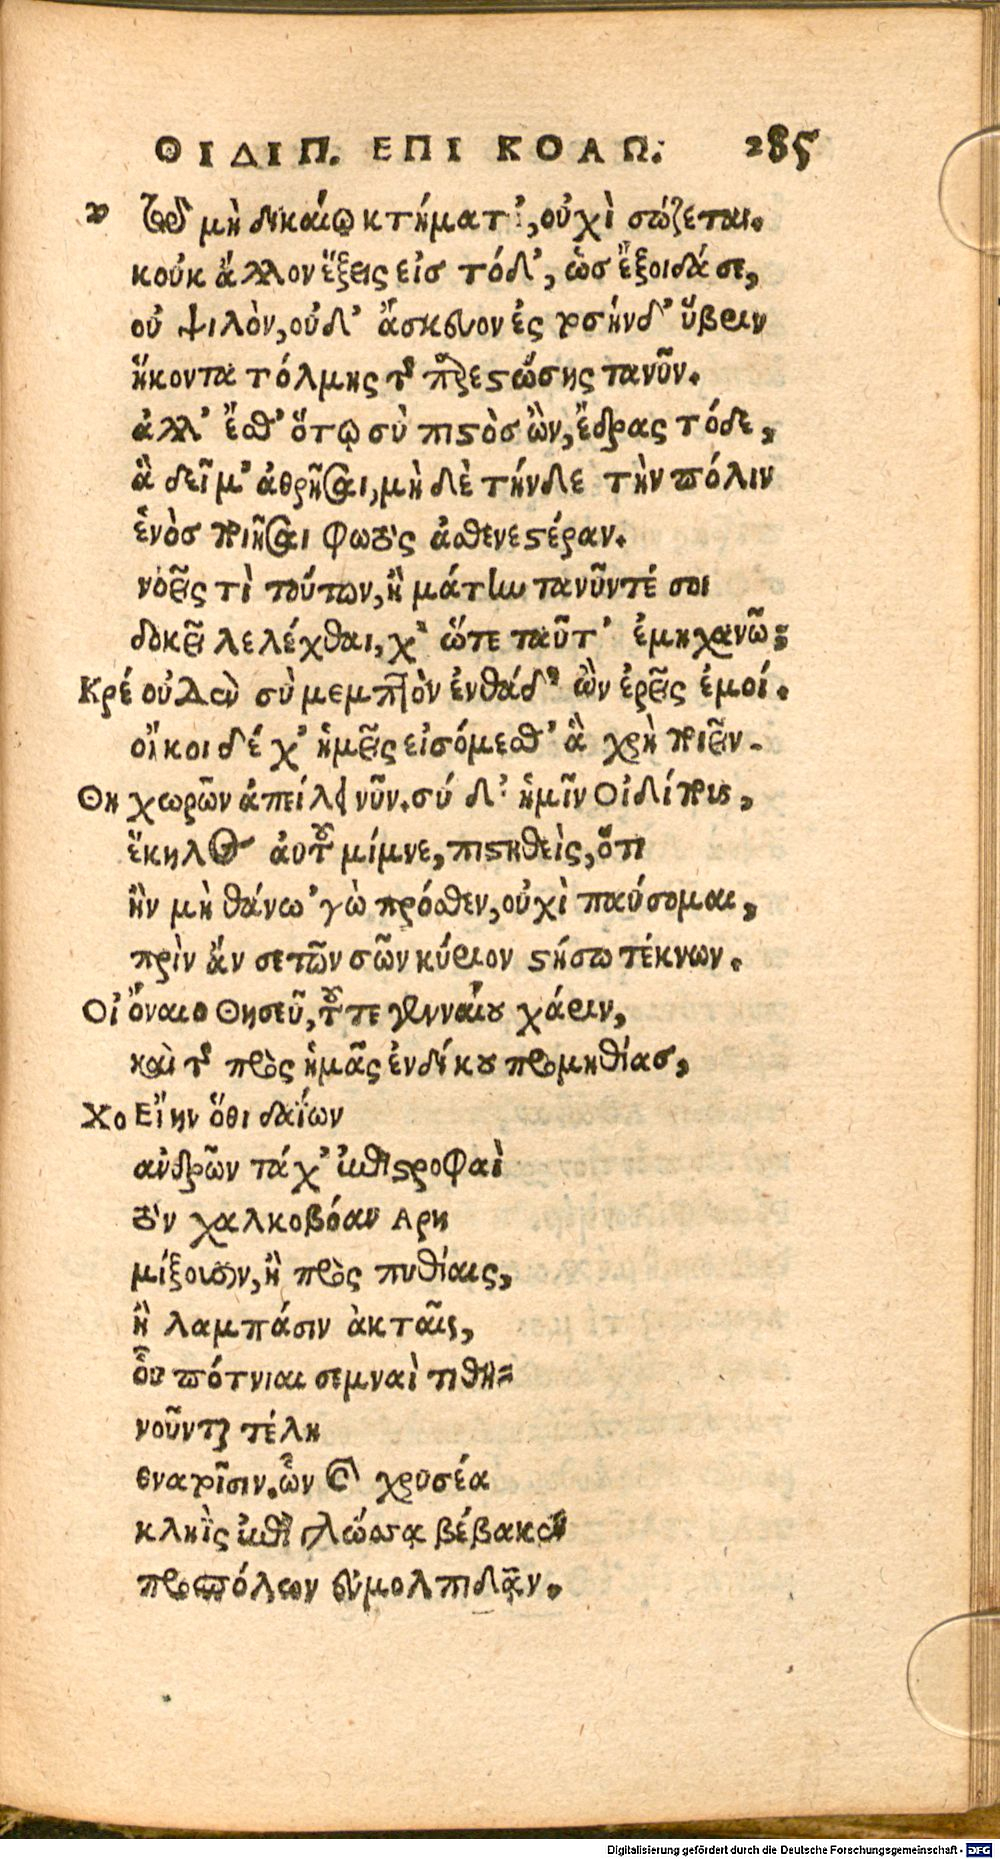 ΟΙΔΙΠ. ΕΠΙ ΚΟΛΩ. 285
τῷ μὴ δικαίῳ κτήματ', οὐχὶ σώζεται.
κοὐκ ἄλλον ἕξεις εἰσ τόδ', ὡσ ἔξοιδά σε,
οὐ ψιλὸν, οὐδ' ἄσκευον ἐς τοσήνδ' ὕβριν
ἥκοντα τόλμης τῆς παρεστώσης τανῦν.
ἀλλ' ἔσθ' ὅτῳ σὺ πιστὸσ ὢν, ἔδρας τόδε,
ἃ δεῖ μ' ἀθρῆσαι, μὴ δὲ τήνδε τὴν πόλιν
ἑνὸσ ποιῆσαι φωτὸς ἀσθενεστέραν.
νοεῖς τὶ τούτων, ἢ μάτην τανῦν τέ σοι
δοκεῖ λελέχθαι, χ' ὥτε ταῦτ' ἐμηχανῶ;
Κρέ οὐδὲν σὺ μεμπτὸν ἐνθάδ' ὢν ἐρεῖς ἐμοί.
οἴκοι δέ χ' ἡμεῖς εἰσόμεσθ' ἃ χρὴ ποιεῖν.
Θη χωρῶν ἀπείλει νῦν. σύ δ' ἡμῖν Οἰδίπους,
ἕκηλος αὐτοῦ μίμνε, πιστηθεὶς, ὅτι
ἢν μὴ θάνω 'γὼ πρόσθεν, οὐχὶ παύσομαι,
πρὶν ἄν σε τῶν σῶν κύριον στήσω τέκνων.
Οἰ ὄναιο Θησεῦ, τοῦ τε γενναίου χάριν,
καὶ τῆς πρὸς ἡμᾶς ἐνδίκου προμηθίασ,
Χο Εἴην ὅθι δαΐων
ανδρῶν τάχ' ἐπιστροφαὶ
τὸν χαλκοβόαν Αρη
μίξουσιν, ἢ πρὸς πυθίαις,
ἢ λαμπάσιν ἀκταῖς,
οὗ πότνιαι σεμναὶ τιθη=
νοῦνται τέλη
θνατοῖσιν. ὧν καὶ χρυσέα
κληῒς ἐπὶ γλώσσα βέβακε
προσπόλων εὐμολπιδᾶν.
Digitalisierung gefördert durch die Deutsche Forschungsgemeinschaft - DFG